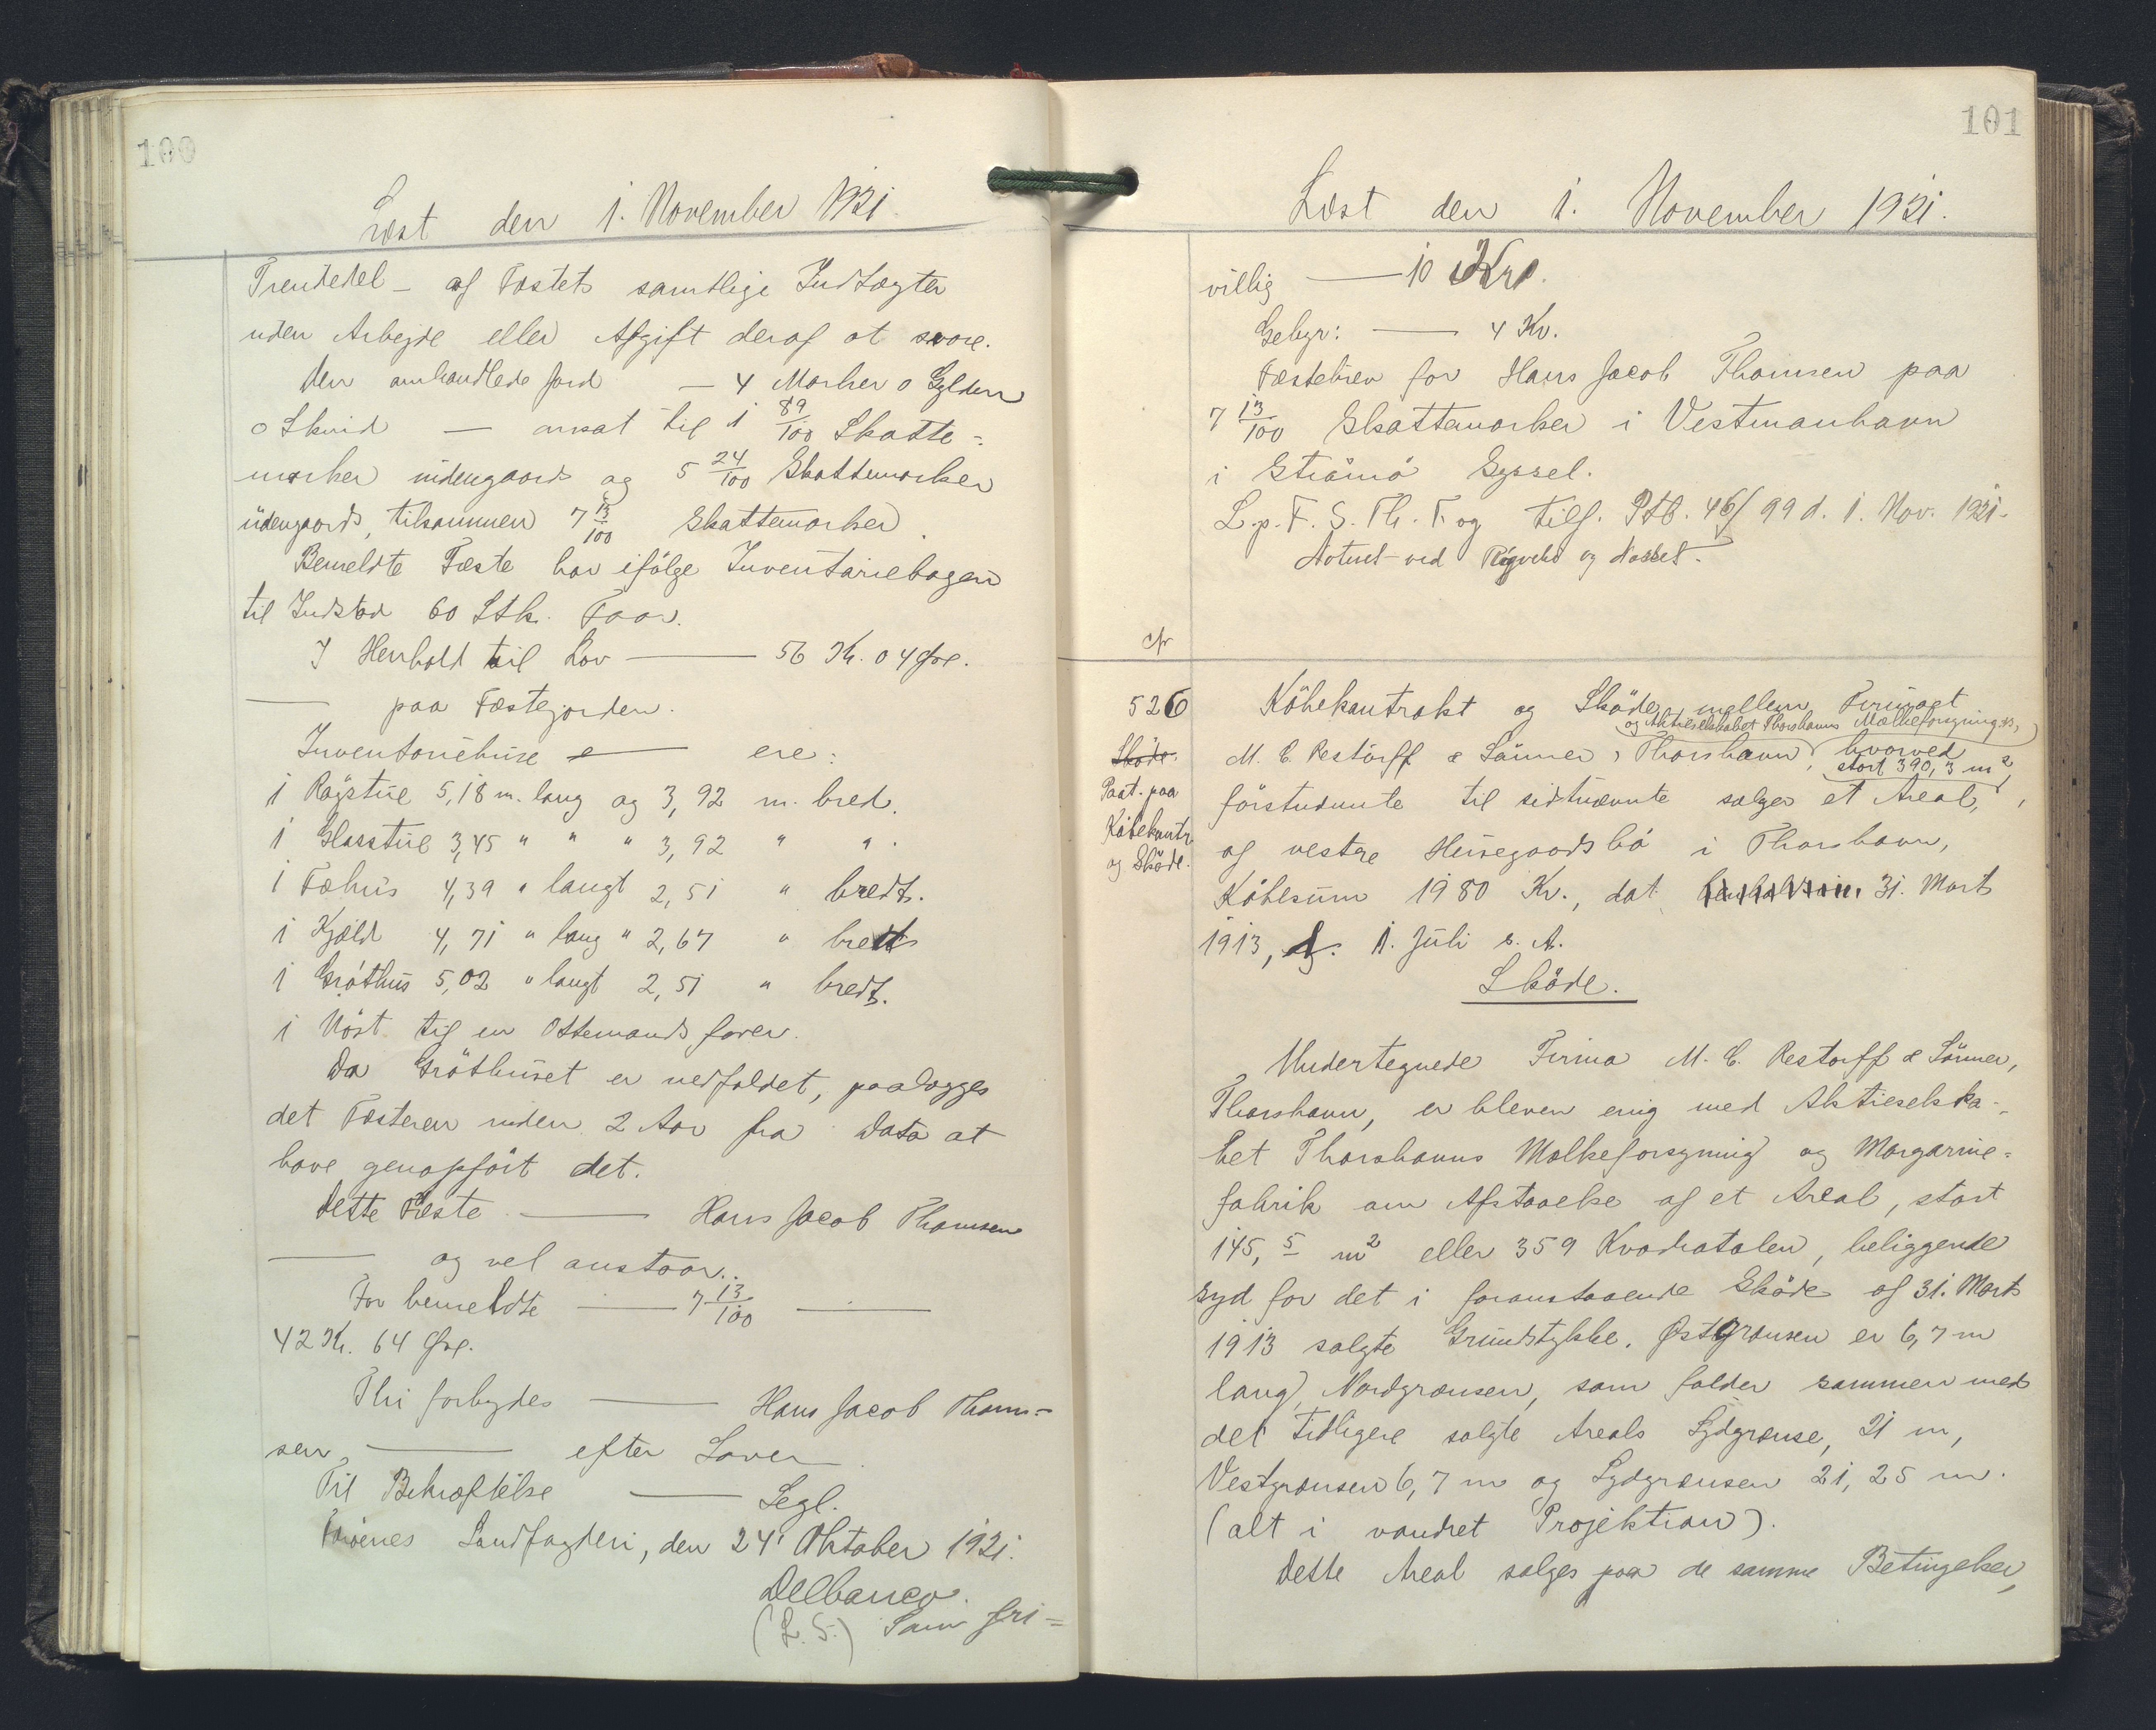 100
Læst den 1. November 1921.
Trediedel – af Fæstets samtlige Indtægter
uden Arbejde eller Afgift deraf at svare.
Den omhandlede Jord – 4 Marker 0 Gylden
0 Skind – ansat til 1 89/100 Skatte=
marker indengaards og 5 24/100 Skattemarker
udengaards, tilsammen 7 13/100 Skattemarker.
Bemeldte Fæste har ifølge Inventariebogen
til Indstød 60 Stk. Faar.
I Henhold til Lov — 56 Kr. 04 Øre.
— paa Fæstejorden.
Inventariehuse — ere:
1 Røgstue 5,18 m. lang og 3,92 m. bred.
1 Glasstue 3,45 " " " 3,92 " " .
1 Fæhus 4,39 " langt 2,51 " bredt.
1 Kjald 4,71 " lang " 2,67 " bredt
1 Gróthus 5,02 " langt 2,51 " bredt.
1 Nöst til en Ottemandsfarer.
Da Gróthuset er nedfaldet, paalægges
det Fæsteren inden 2 Aar fra Dato at
have genopfört det.
Dette Fæste — Hans Jacob Thomsen
— og vel anstaar.
For bemeldte — 7 13/100 —
42 Kr. 64 Øre.
Thi forbydes — Hans Jacob Thom=
sen, — efter Loven
Til Bekræftelse — Segl.
Færøernes Landfogderi, den 24' Oktober 1921.
Delbanco.
(L. S.) Som fri=
101
Læst den 1. November 1921.
villig — 10 Kr.
Gebyr: — 4 Kr.
Fæstebrev for Hans Jacob Thomsen paa
7 13/100 Skattemarker i Vestmanhavn
i Strömö Syssel.
L. p. F. S. Th. T. og tilf. Ptb. 46/99 d. 1. Nov. 1921.
Noteret ved
cfr
526
Sköde.
Paat. paa
Köbekontr.
og Sköde.
Köbekontrakt og Sköde mellem Firmaet
og Aktieselskabet Thorshavns Mælkeforsyning
M. C. Restorff & Sönner, Thorshavn, hvorved
stort 390,3 m²,
förstnævnte til sidstnævnte sælger et Areal,
af vestre Husegaardsbö i Thorshavn,
Köbesum 1980 Kr., dat. 31. Marts
1913, 1. Juli s. A.
Sköde.
Undertegnede Firma M. C. Restorff & Sönner,
Thorshavn, er bleven enig med Aktieselska-
bet Thorshavns Mælkeforsyning og Margarine=
fabrik om Afstaaelse af et Areal, stort
145,5 m² eller 359 Kvadratalen, beliggende
syd for det i foranstaaende Sköde af 31. Marts
1913 solgte Grundstykke. Østgrænsen er 6,7 m
lang, Nordgrænsen, som falder sammen med
det tidligere solgte Areals Sydgrænse, 21 m,
Vestgrænsen 6,7 m og Sydgrænsen 21,25 m.
(alt i vandret Projektion).
Dette Areal sælges paa de samme Betingelser,